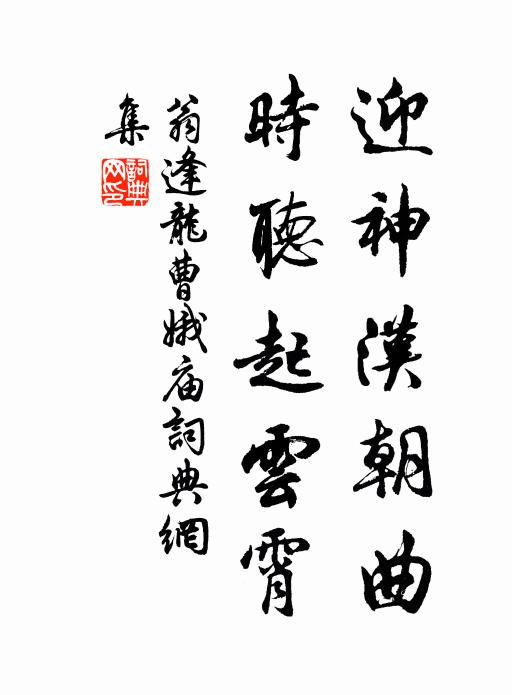 迎神漢朝曲
時聽起雲霄
翁逢龍曹娥庙詞典網
集
詞典網印